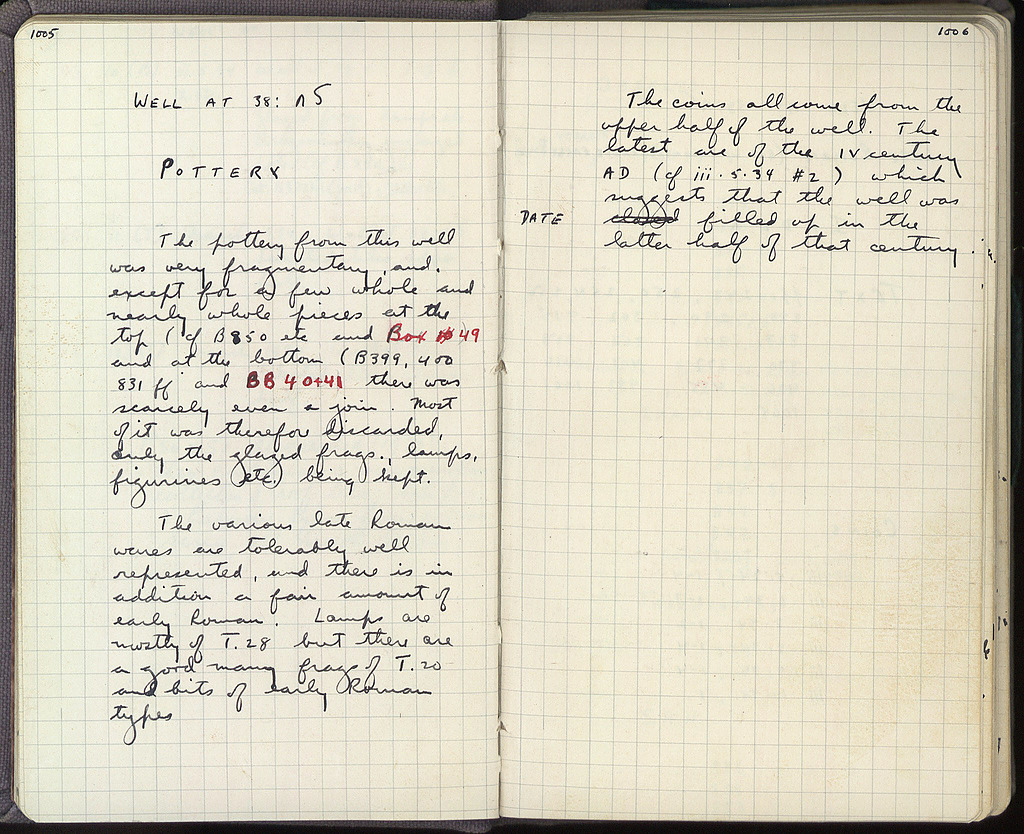 1005
WELL AT 38: ΛΣ
POTTERY
The pottery from this well
was very fragmentary, and,
except for a few whole and
nearly whole pieces at the
top (cf B850 etc and Box 49
and at the bottom (B399, 400
831 ff and BB 40+41 there was
scarcely even a join. Most
of it was therefor discarded,
only the glazed frags., lamps,
figurines etc. being kept.
The various late Roman
wares are tolerably well
represented, and there is in
addition a fair amount of
early Roman. Lamps are
mostly of T.28 but there are
a good many frags of T.20
and bits of early Roman
types
1006
The coins all come from the
upper half of the well. The
latest are of the IV century
AD (cf iii.5.34 #2) which
suggests that the well was
DATE closed filled up in the
latter half of that century.